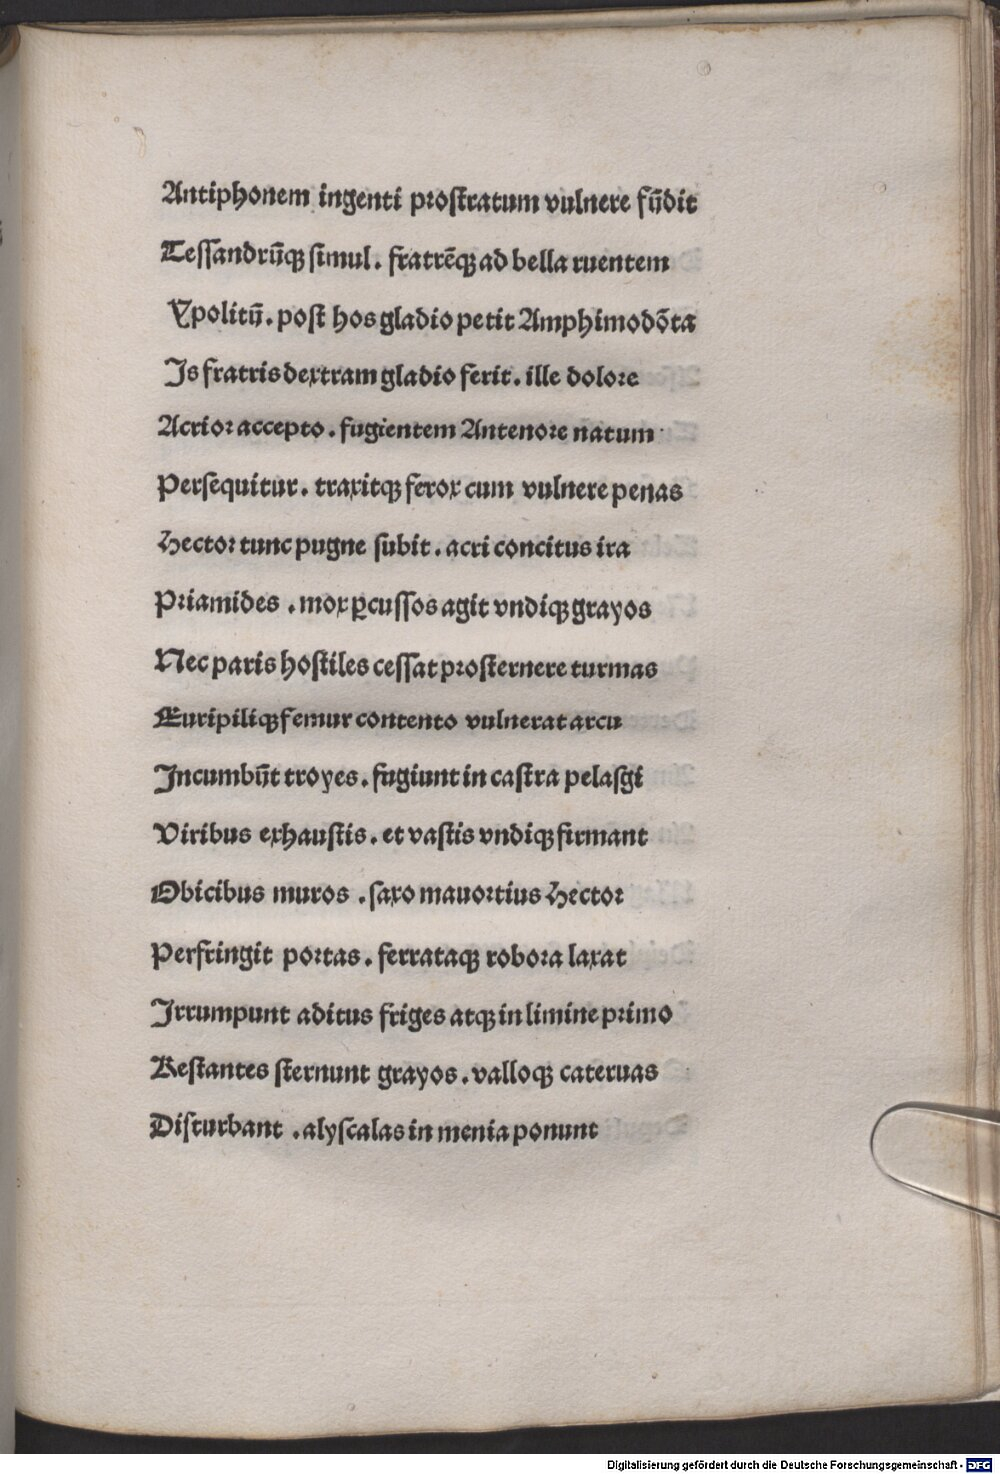 Antiphonem ingenti proſtratum vulnere fūdit
Teſſandrūqꝫ ſimul. fratrēqꝫ ad bella ruentem
Ypolitū. poſt hos gladio petit Amphimodōta
Is fratris dextram gladio ferit. ille dolore
Acrior accepto. fugientem Antenore natum
Perſequitur. traxitqꝫ ferox cum vulnere penas
Hector tunc pugne ſubit. acri concitus ira
Priamides. mox ꝑcuſſos agit vndiqꝫ grayos
Nec paris hoſtiles ceſſat proſternere turmas
Euripiliqꝫ femur contento vulnerat arcu
Incumbūt troyes. fugiunt in caſtra pelaſgi
Viribus exhauſtis. et vaſtis vndiqꝫ firmant
Obicibus muros. ſaxo mauortius Hector
Perfringit portas. ferrataqꝫ robora laxat
Irrumpunt aditus friges atqꝫ in limine primo
Reſtantes ſternunt grayos. valloqꝫ cateruas
Diſturbant. aly ſcalas in menia ponunt
Digitalisierung gefördert durch die Deutsche Forschungsgemeinschaft - DFG